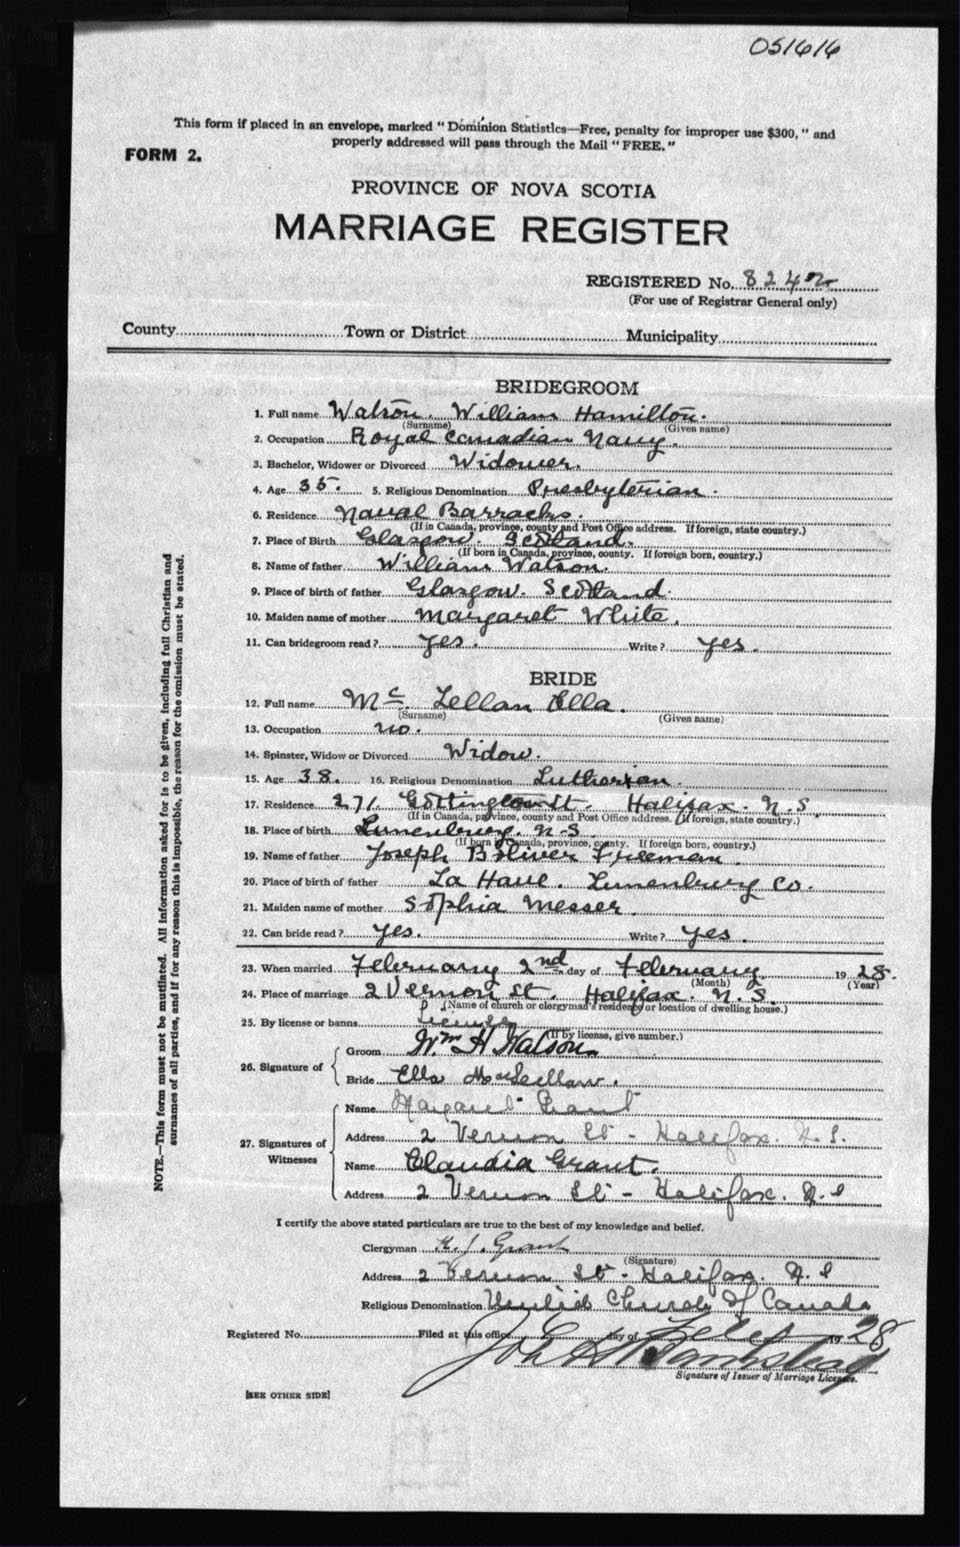 051616
This form if placed in an envelope, marked "Dominion Statistics—Free, penalty for improper use $300," and
properly addressed will pass through the Mail "FREE."
FORM 2.
PROVINCE OF NOVA SCOTIA
MARRIAGE REGISTER
REGISTERED No. 8242
(For use of Registrar General only)
County Town or District Municipality
BRIDEGROOM
1. Full name Watson. William Hamilton.
(Surname) (Given name)
2. Occupation Royal Canadian Navy.
3. Bachelor, Widower or Divorced Widower.
4. Age 35. 5. Religious Denomination Presbyterian.
6. Residence Naval Barracks.
(If in Canada, province, county and Post Office address. If foreign, state country.)
7. Place of Birth Glasgow. Scotland.
(If born in Canada, province, county. If foreign born, country.)
8. Name of father William Watson.
9. Place of birth of father Glasgow. Scotland.
10. Maiden name of mother Margaret White.
11. Can bridegroom read? yes. Write? yes.
BRIDE
12. Full name Mc Lellan Ella.
(Surname) (Given name)
13. Occupation no.
14. Spinster, Widow or Divorced Widow.
15. Age 38. 16. Religious Denomination Lutherian.
17. Residence 271 Gottingen St. Halifax. N.S
(If in Canada, province, county and Post Office address. If foreign, state country.)
18. Place of birth Lunenburg. N.S.
(If born in Canada, province, county. If foreign born, country.)
19. Name of father Joseph Boliver Freeman.
20. Place of birth of father La Have. Lunenburg Co.
21. Maiden name of mother Sophia Messer.
22. Can bride read? yes. Write? yes.
23. When married February 2nd day of February 1928.
(Month) (Year)
24. Place of marriage 2 Vernon St. Halifax. N.S.
(Name of church or clergyman's residence or location of dwelling house.)
25. By license or banns License
(If by license, give number.)
26. Signature of
Groom Wm H Watson.
Bride Ella MacLellan.
27. Signatures of Witnesses
Name Margaret Grant
Address 2 Vernon St - Halifax. N.S.
Name Claudia Grant.
Address 2 Vernon St - Halifax. N.S
I certify the above stated particulars are true to the best of my knowledge and belief.
Clergyman Grant
(Signature)
Address 2 Vernon St - Halifax. N.S
Religious Denomination United Church of Canada
Registered No. Filed at this office 6 day of Feby 1928
Signature of Issuer of Marriage Licenses.
[SEE OTHER SIDE]
NOTE.—This form must not be mutilated. All information asked for is to be given, including full Christian and
surnames of all parties, and if for any reason this is impossible, the reason for the omission must be stated.